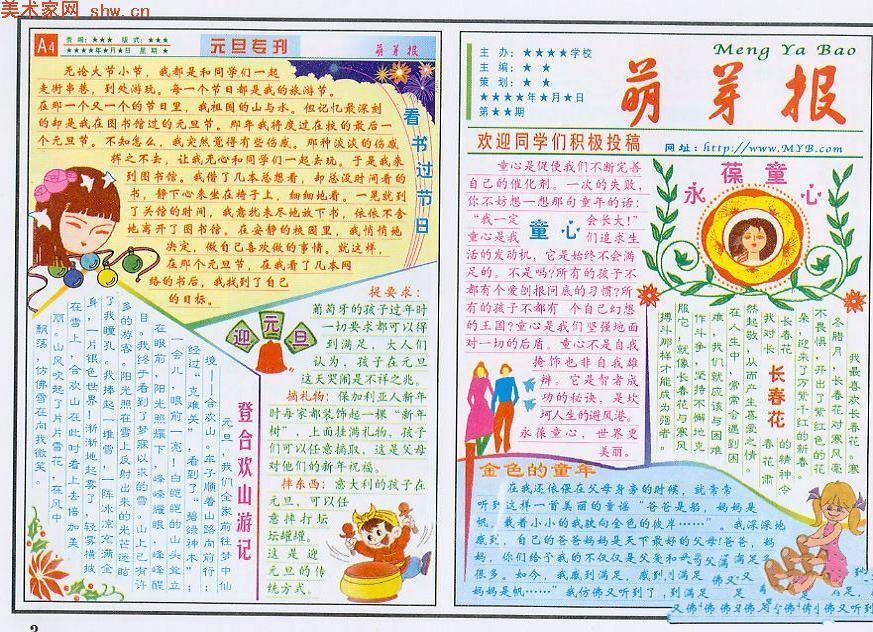 美术家网 shw.cn
A4
责编：★★★ 版式：★★★
★★★★年★月★日 星期 ★
元旦专刊
萌芽报
看书过节日
无论大节小节，我都是和同学们一起
走街串巷，到处游玩。每一个节日都是我的旅游节。
在那一个又一个的节日里，我祖国的山与水。但记忆最深刻
的却是我在图书馆过的元旦节。那年我将度过在校的最后一
个元旦节。不知怎么，我突然觉得有些伤感。那种淡淡的伤感
挥之不去，让我无心和同学们一起去玩。于是我来
到图书馆。我借了几本总想看，却总没时间看的
书，静下心来坐在椅子上，细细地看。一晃就到
了关馆的时间，我意犹未尽地放下书，依依不舍
地离开了图书馆。在安静的校园里，我悄悄地
决定，做自己喜欢做的事情。就这样，
在那个元旦节，在我看了几本网
络的书后，我找到了自己
的目标。
迎元旦
提要求：
葡萄牙的孩子过年时
一切要求都可以得
到满足，大人们
认为，孩子在元旦
这天哭闹是不祥之兆。
摘礼物：保加利亚人新年
时每家都装饰起一棵“新年
树”，上面挂满礼物，孩子
们可以任意摘取，这是父母
对他们的新年祝福。
摔东西：意大利的孩子在
元旦，可以任
意摔打坛
坛罐罐。
这是迎
元旦的传
统方式。
登合欢山游记
元旦，我们全家前往梦中仙
境——合欢山。车子顺着山路向前行；
经过“克难关”，看到了“碧绿神木”；
一会儿，眼前一亮！白皑皑的山头耸立
在眼前，阳光照耀下，峰峰耀眼，峰峰醒
目。我终于看到了梦寐以求的雪，山上已有许
多的游客。阳光照在雪上反射出来的光芒迷眩
了我瞳孔。我捧起一堆雪，一阵冰凉充满全
身，一片银色世界！渐渐地起雾了，轻雾横披
在雪上，合欢山在此时看上去倍加美
丽。山风吹起了片片雪花，在风中
飘落，仿佛雪在向我微笑。
主 办：★★★★学校
主 编：★ ★
策 划：★ ★
★★★★年★月★日
第★★期
Meng Ya Bao
萌芽报
欢迎同学们积极投稿
网址：http://www.MYB.com
童心
童心是促使我们不断完善
自己的催化剂。一次的失败，
你不妨想一想那句童年的话：
“我一定会长大！”
童心是我们追求生
活的发动机，它是始终不会满
足的。不是吗？所有的孩子不
都有个爱刨根问底的习惯？所
有的孩子不都有 个自己幻想
的王国？童心是我们坚强地面
对一切的后盾。童心不是自我
掩饰也非自我雄
辩。它是智者成
功的秘诀，是坎
坷人生的避风港。
永葆童心，世界更
美丽。
永葆童心
长春花
我最喜欢长春花。寒
冬腊月，长春花对寒风毫
不畏惧，开出了紫红色的花
朵，迎来了万紫千红的新春。
长春花的精神令
我对长春花肃
然起敬，从而产生喜爱之情。
在人生中，常常会遇到困
难，我们就应该与困难
作斗争，坚持不懈地克
服它，就像长春花与寒风
搏斗那样才能成为强者。
金色的童年
在我还依偎在父母身旁的时候，就常常
听到这样一首美丽的童谣“爸爸是船，妈妈是
帆，载着小小的我驶向金色的彼岸……”。我深深地
感到，自己的爸爸妈妈是天下最好的父母！爸爸，妈
妈，你们给予我的不仅仅是父爱和
很多。如今，我感到满足，感到
妈妈是帆……”我仿佛又听到了
2